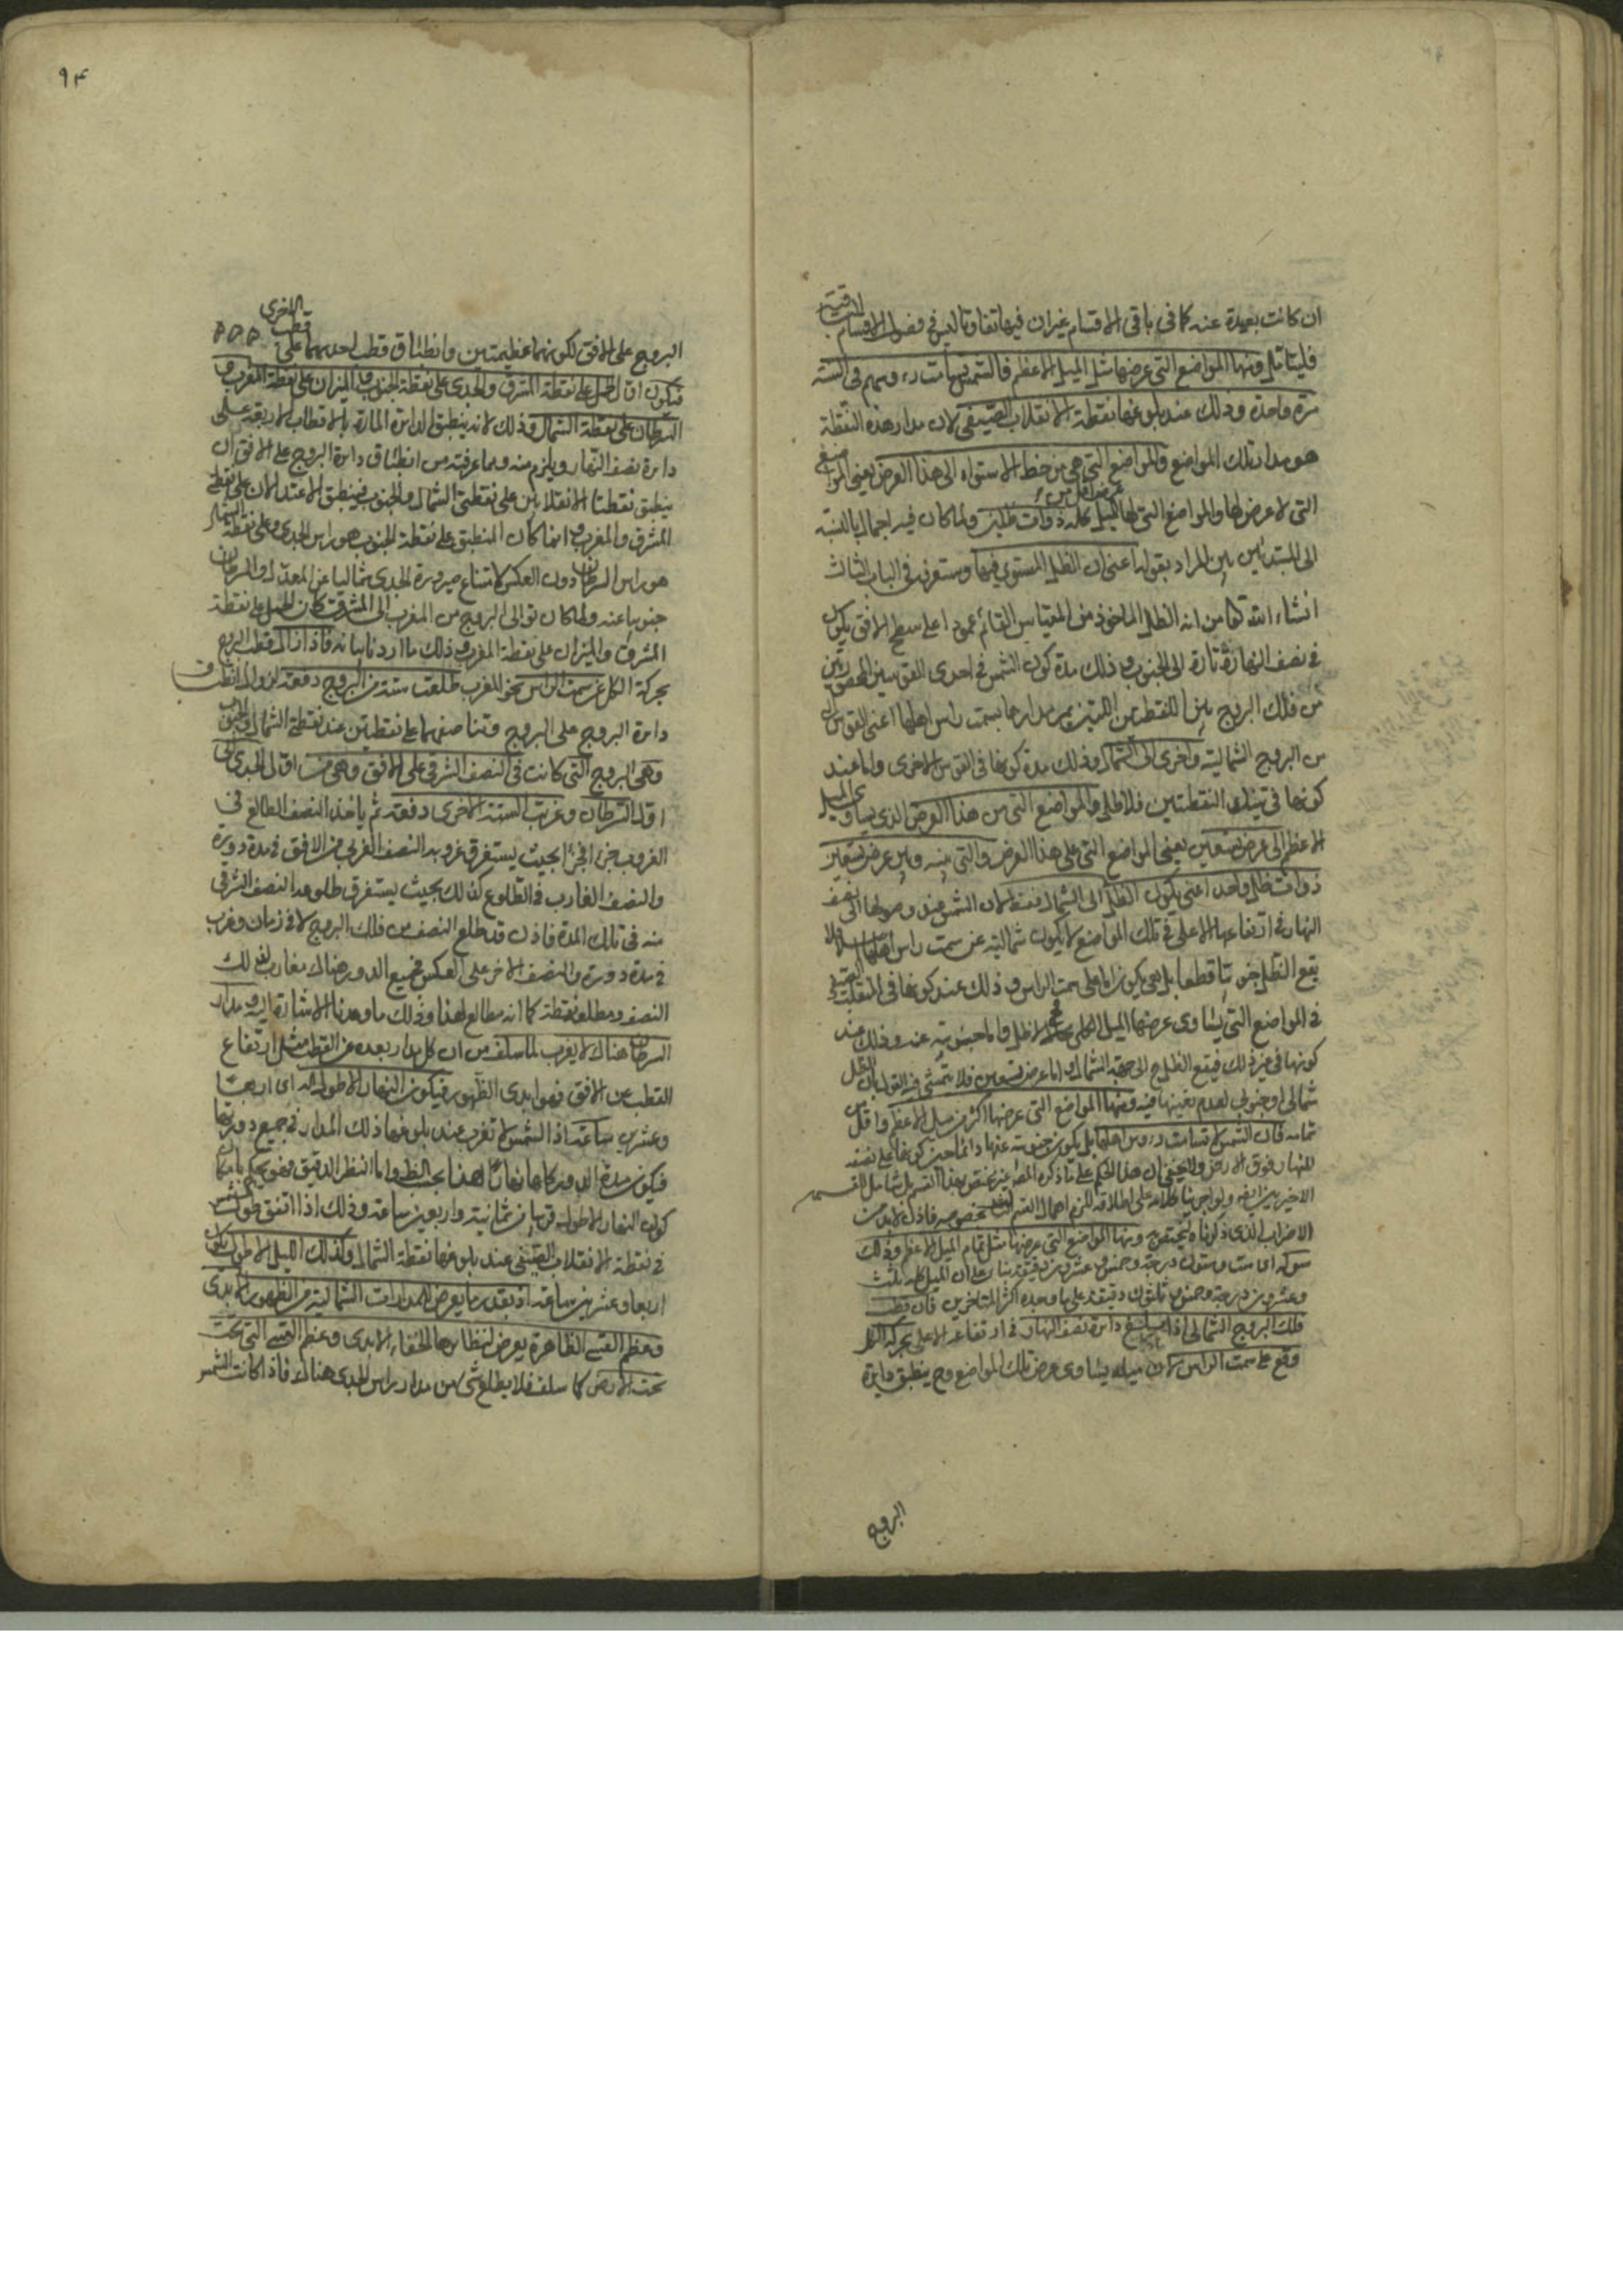 ان كانت بعيدة عنه كما في باقي الاقسام غير ان فيها تفاوتا ليس في فصول الاقسام الباقية
فليتأمل ومنها المواضع التي عرضها مثل الميل الاعظم فالشمس تسامت رءوسهم في السنة
مرة واحدة وذلك عند بلوغها نقطة الانقلاب الصيفي لان مدار هذه النقطة
هو مدار تلك المواضع والمواضع التي هي من خط الاستواء الى هذا العرض يعني المواضع
التي لا عرض لها والمواضع التي لها عرض اقل من الميل كله ذوات ظلين ولما كان فيه اجمال بالنسبة
الى المبتدئين بين المراد بقوله اعني ان الظل المستوي فيها وستعرفه في الباب الثالث
انشاء الله تعالى من انه الظل الماخوذ من المقياس القائم عمودا على سطح الافق يكون
في نصف النهار تارة الى الجنوب وذلك مدة كون الشمس في احدى القوسين المحصورتين
من فلك البروج بين النقطتين اللتين يمر مدارهما بسمت راس اهلها اعني القوس التي
من البروج الشمالية واخرى الى الشمال وذلك مدة كونها في القوس الاخرى واما عند
كونها في تينك النقطتين فلا ظل والمواضع التي من هذا العرض الذي يساوي الميل
الاعظم الى عرض تسعين يعني المواضع التي على هذا العرض والتي بينه وبين عرض تسعين
ذوات ظل واحد اعني يكون الظل الى الشمال فقط لان الشمس عند وصولها الى نصف
النهار في ارتفاعها الاعلى في تلك المواضع لا يكون شمالية عن سمت راس اهلها فلا
يقع الظل جنوبيا قطعا بل هي يكون اما على سمت الراس وذلك عند كونها في المنقلب الصيفي
في المواضع التي يساوي عرضها الميل الكلي فحينئذ لا ظل واما جنوبية عنه وذلك عند
كونها في غير ذلك فيقع الظل ح الى جهة الشمال واما عرض تسعين فلا يتمشى فيه القول بان الظل
شمالي او جنوبي لعدم تعينهما فيه ومنها المواضع التي عرضها اكثر من ميل الاعظم واقل من
تمامه فان الشمس لا تسامت رءوس اهلها بل يكون جنوبية عنها دائما حين كونها على نصف
النهار فوق الارض ولا يخفى ان هذا الحكم على ما ذكره المص غير مختص بهذا القسم بل شامل للقسمين
الاخيرين ايضا ولو اجرينا كلامه على اطلاقه للزم اهمال القسم بخصوصه فاذن لا بد من
الاضراب الذي ذكرناه ليختص به ومنها المواضع التي عرضها مثل تمام الميل الاعظم وذلك
سو له اي ست وستون درجة وخمس وعشرون دقيقة بناء على ان الميل كله ثلث
وعشرون درجة وخمس وثلثون دقيقة على ما وجده اكثر المتاخرين فان قطب
فلك البروج الشمالي اذا بلغ دائرة نصف النهار في ارتفاعه الاعلى بحركة الكل
وقع على سمت الراس لان ميله يساوي عرض تلك المواضع وح ينطبق دائرة
البروج
٩٤
البروج على الافق لكونهما عظيمتين وانطباق قطب احدهما على قطب الاخرى
فيكون اول الحمل على نقطة المشرق والجدي على نقطة الجنوب والميزان على نقطة المغرب و
السرطان على نقطة الشمال وذلك لانه ينطبق الدائرة المارة بالاقطاب الاربعة على
دائرة نصف النهار ويلزم منه ومما عرفته من انطباق دائرة البروج على الافق ان
ينطبق نقطتا الانقلابين على نقطتي الشمال والجنوب فينطبق الاعتدالان على نقطتي
المشرق والمغرب وانما كان المنطبق على نقطة الجنوب هو راس الجدي وعلى نقطة الشمال
هو راس السرطان دون العكس لامتناع صيرورة الجدي شماليا عن المعدل والسرطان
جنوبيا عنه ولما كان توالي البروج من المغرب الى المشرق كان الحمل على نقطة
المشرق والميزان على نقطة المغرب وذلك ما اردنا بيانه فاذا زال قطب البروج
بحركة الكل عن سمت الراس نحو المغرب طلعت ستة من البروج دفعة لزوال انطباق
دائرة البروج على البروج وتناصفهما على نقطتين عند نقطتي الشمال والجنوب
وهي البروج التي كانت في النصف الشرقي على الافق وهي من اول الجدي الى
اول السرطان وغربت الستة الاخرى دفعة ثم ياخذ النصف الطالع في
الغروب جزءا فجزءا بحيث يستغرق غروبه النصف الغربي من الافق في مدة دورة
والنصف الغارب في الطلوع كذلك بحيث يستغرق طلوعه النصف الشرقي
منه في تلك المدة فاذن قد طلع النصف من فلك البروج لا في زمان وغرب
في مدة دورة والنصف الاخر على العكس فجميع الدور هناك مغارب لذلك
النصف ومطلعه نقطة كما انه مطالع لهذا وذلك ما وعدنا الاشارة اليه ومدار
السرطان هناك لا يغرب لما سلف من ان كل مدار بعده عن القطب مثل ارتفاع
القطب عن الافق فهو ابدي الظهور فيكون النهار الاطول كد اي اربعا
وعشرين ساعة اذ الشمس لا تغرب عند بلوغها ذلك المدار في جميع دورتها
فيكون مدة الدورة كلها نهارا هذا بحسب الظاهر واما النظر الدقيق فهو يحكم بامكان
كون النهار الاطول قريبا من ثمانية واربعين ساعة وذلك اذا اتفق حلول الشمس
في نقطة الانقلاب الصيفي عند بلوغها نقطة الشمال وكذلك الليل الاطول يكون
اربعا وعشرين ساعة اذ بقدر ما يعرض للمدارات الشمالية من الظهور الابدي
وعظم القسي الظاهرة يعرض لنظائرها الخفاء الابدي وعظم القسي التي تحت
تحت الارض كما سلف فلا يطلع شئ من مدار راس الجدي هناك فاذا كانت الشمس